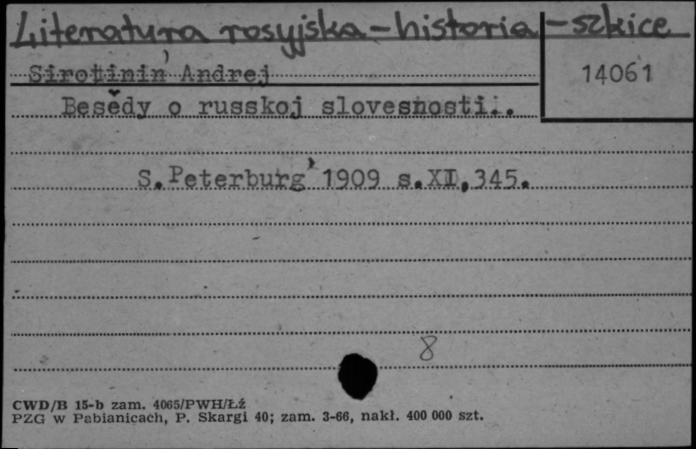 Literatura rosyjska - historia - szkice
Sirotinin' Andrej
14061
Besědy o russkoj slovesnosti..
S.Peterburg' 1909 s.XI,345.
8
CWD/B 15-b zam. 4065/PWH/Łź
PZG w Pabianicach, P. Skargi 40; zam. 3-66, nakł. 400 000 szt.